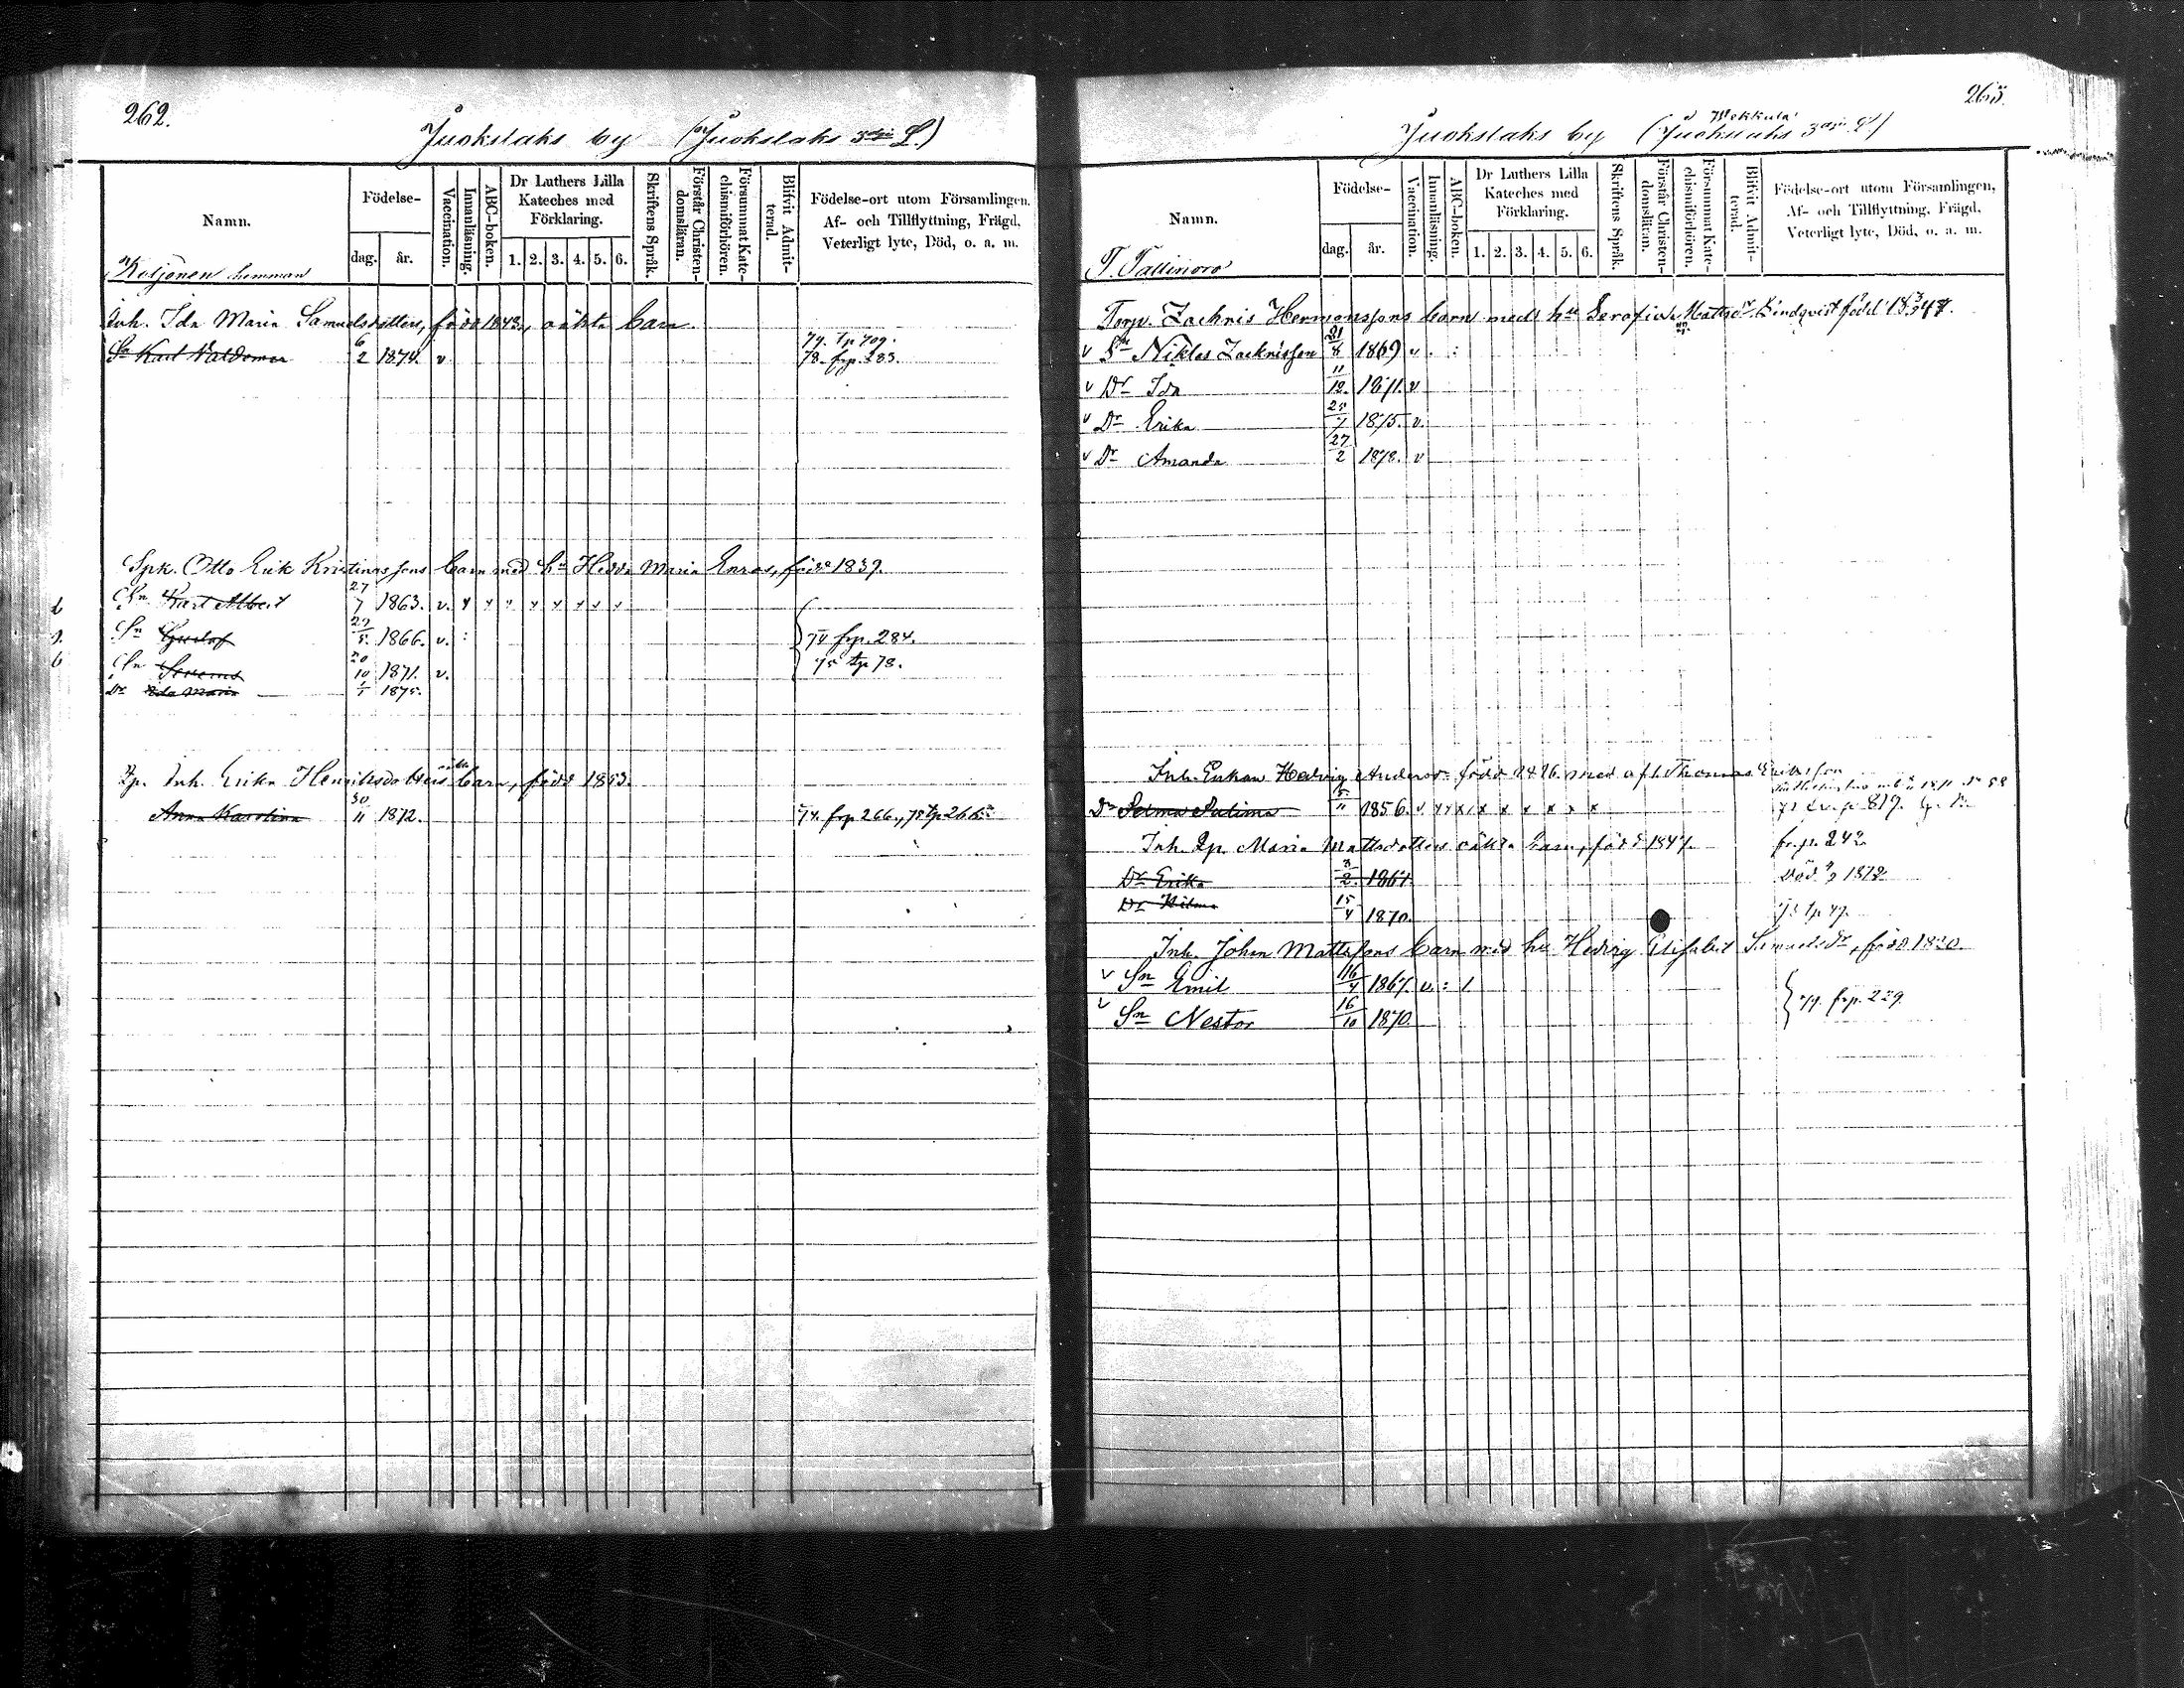 262.
Juokslaks by (Juokslaks 3dje L.)
Namn.
Födelse-
dag. år.
Vaccination.
Innanläsning.
ABC-boken.
Dr Luthers Lilla Kateches med Förklaring.
1. 2. 3. 4. 5. 6.
Skriftens Språk.
Förstår Christendomsläran.
Försummat Katechismiförhören.
Blifvit Admitterad.
Födelse-ort utom Församlingen, Af- och Tillflyttning, Frägd, Veterligt lyte, Död, o. a. m.
hemman
Inh. Ida Maria Samuelsdotters, född 1843, oäkta barn
79. tp 709.
Sn Karl Valdemar 6/2 1874. v 78. frp. 283.
Spk. Otto Erik Kristinassons barn med hu Hedda Maria Enros, född 1839.
Sn Karl Albert 27/7 1863. v. x x x x x x x x
Sn Gustaf 27/5 1866. v. : 74 frp. 284.
Sn 20/10 1871. v. 75 tp 78.
Dr Ida Maria 1/1 1875.
Qp. Inh. Erika Henriksdotters oäkta barn, född 1853.
Anna Karolina 30/11 1872. 74. frp 266.,
265.
Wekkula
Juokslaks by (Juokslaks 3dje L.)
Namn.
Födelse-
dag. år.
Vaccination.
Innanläsning.
ABC-boken.
Dr Luthers Lilla Kateches med Förklaring.
1. 2. 3. 4. 5. 6.
Skriftens Språk.
Förstår Christendomsläran.
Försummat Katechismiförhören.
Blifvit Admitterad.
Födelse-ort utom Församlingen, Af- och Tillflyttning, Frägd, Veterligt lyte, Död, o. a. m.
T. Tallinoro
Torp. Zachris Hermanssons barn med hu Serafia Mattsdr Lindqvist född
v Sn Niklas Zachrisson 21/8 1869 v. :
v Dr Ida 11/12. 1871. v
v Dr Erika 25/7 1875. v.
v Dr Amanda 27/2 1878. v
Inh. Enkan Hedvig född med afl. Thomas Eriksson
Dr Selma 5/11 1856. v x x x x x x x x x
Inh. Qp. Maria Mattsdotters oäkta barn, född 1847. frp. 242
Dr Erika 3/2. 1867 Död 1872
Dr 15/4 1870.
Inh. Johan Mattssons barn med hu Hedvig Elisabet Samuelsdr, född 1830.
v Sn Emil 16/4 1867. v. : 1
v Sn Nestor 16/10 1870. 79. frp. 229.